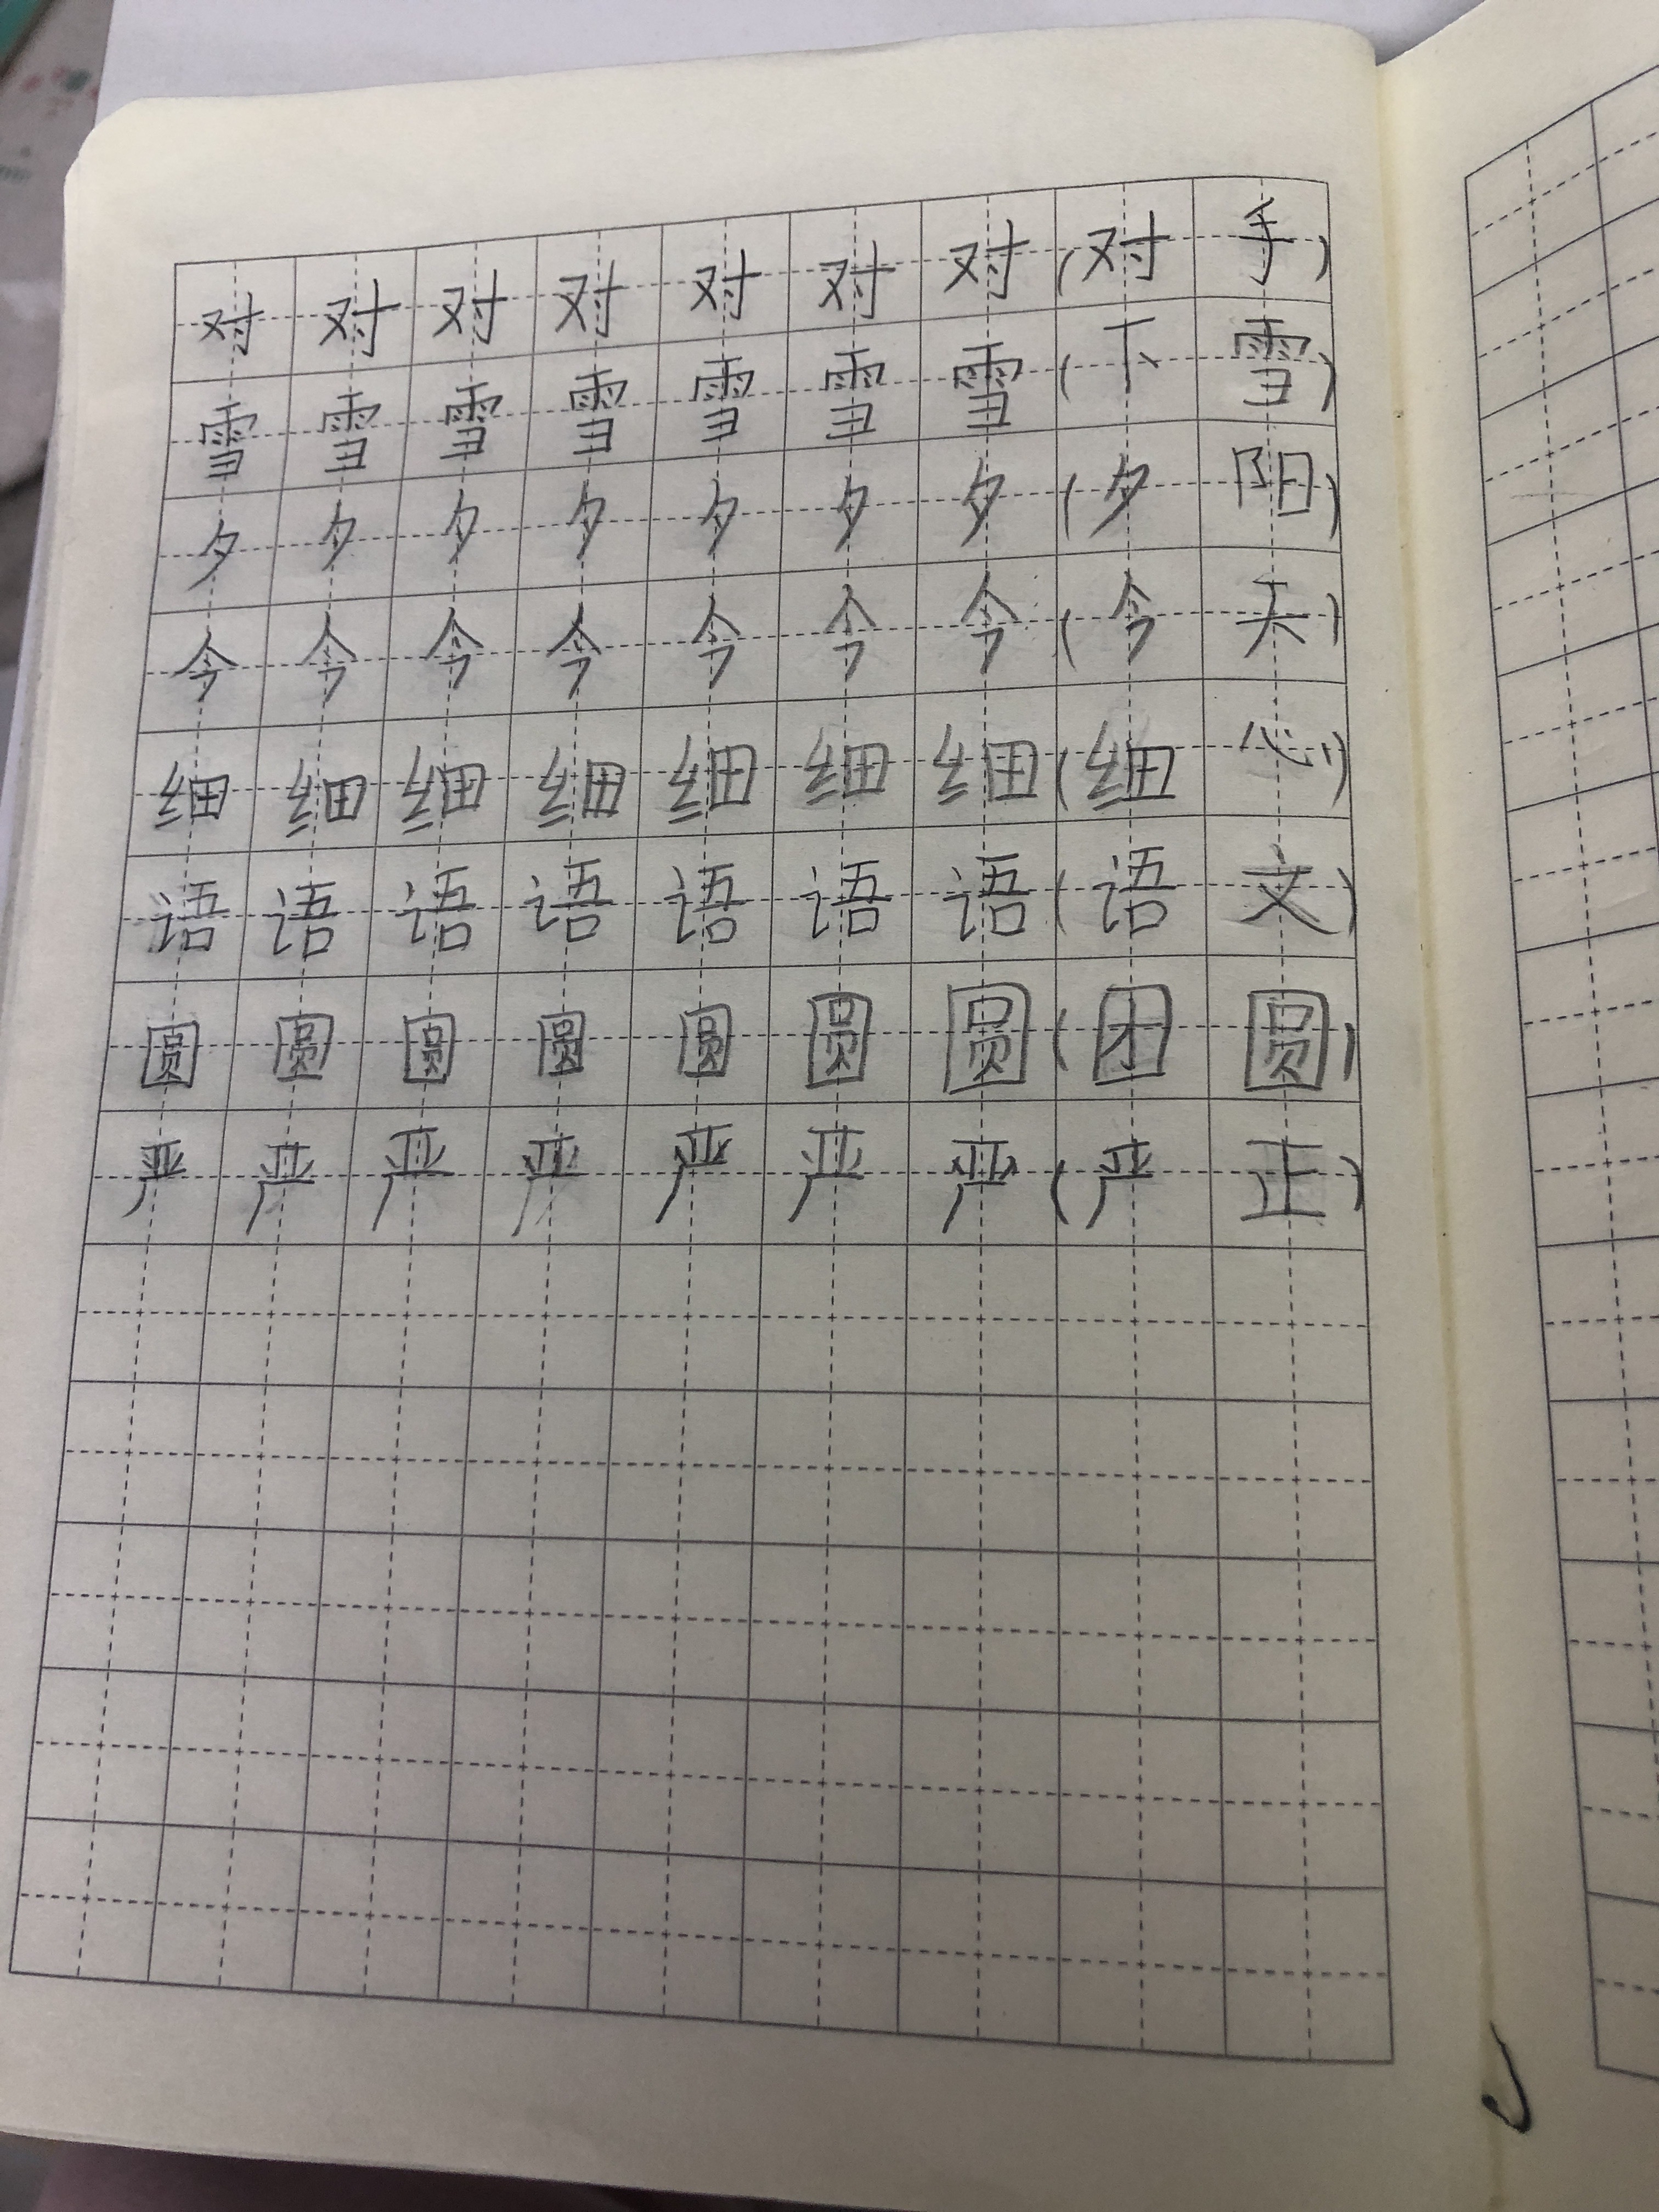 对对对对对对对(对手)
雪雪雪雪雪雪雪(下雪)
夕夕夕夕夕夕夕(夕阳)
今今今今今今今(今天)
细细细细细细细(细心)
语语语语语语语(语文)
圆圆圆圆圆圆圆(团圆)
严严严严严严严(严正)